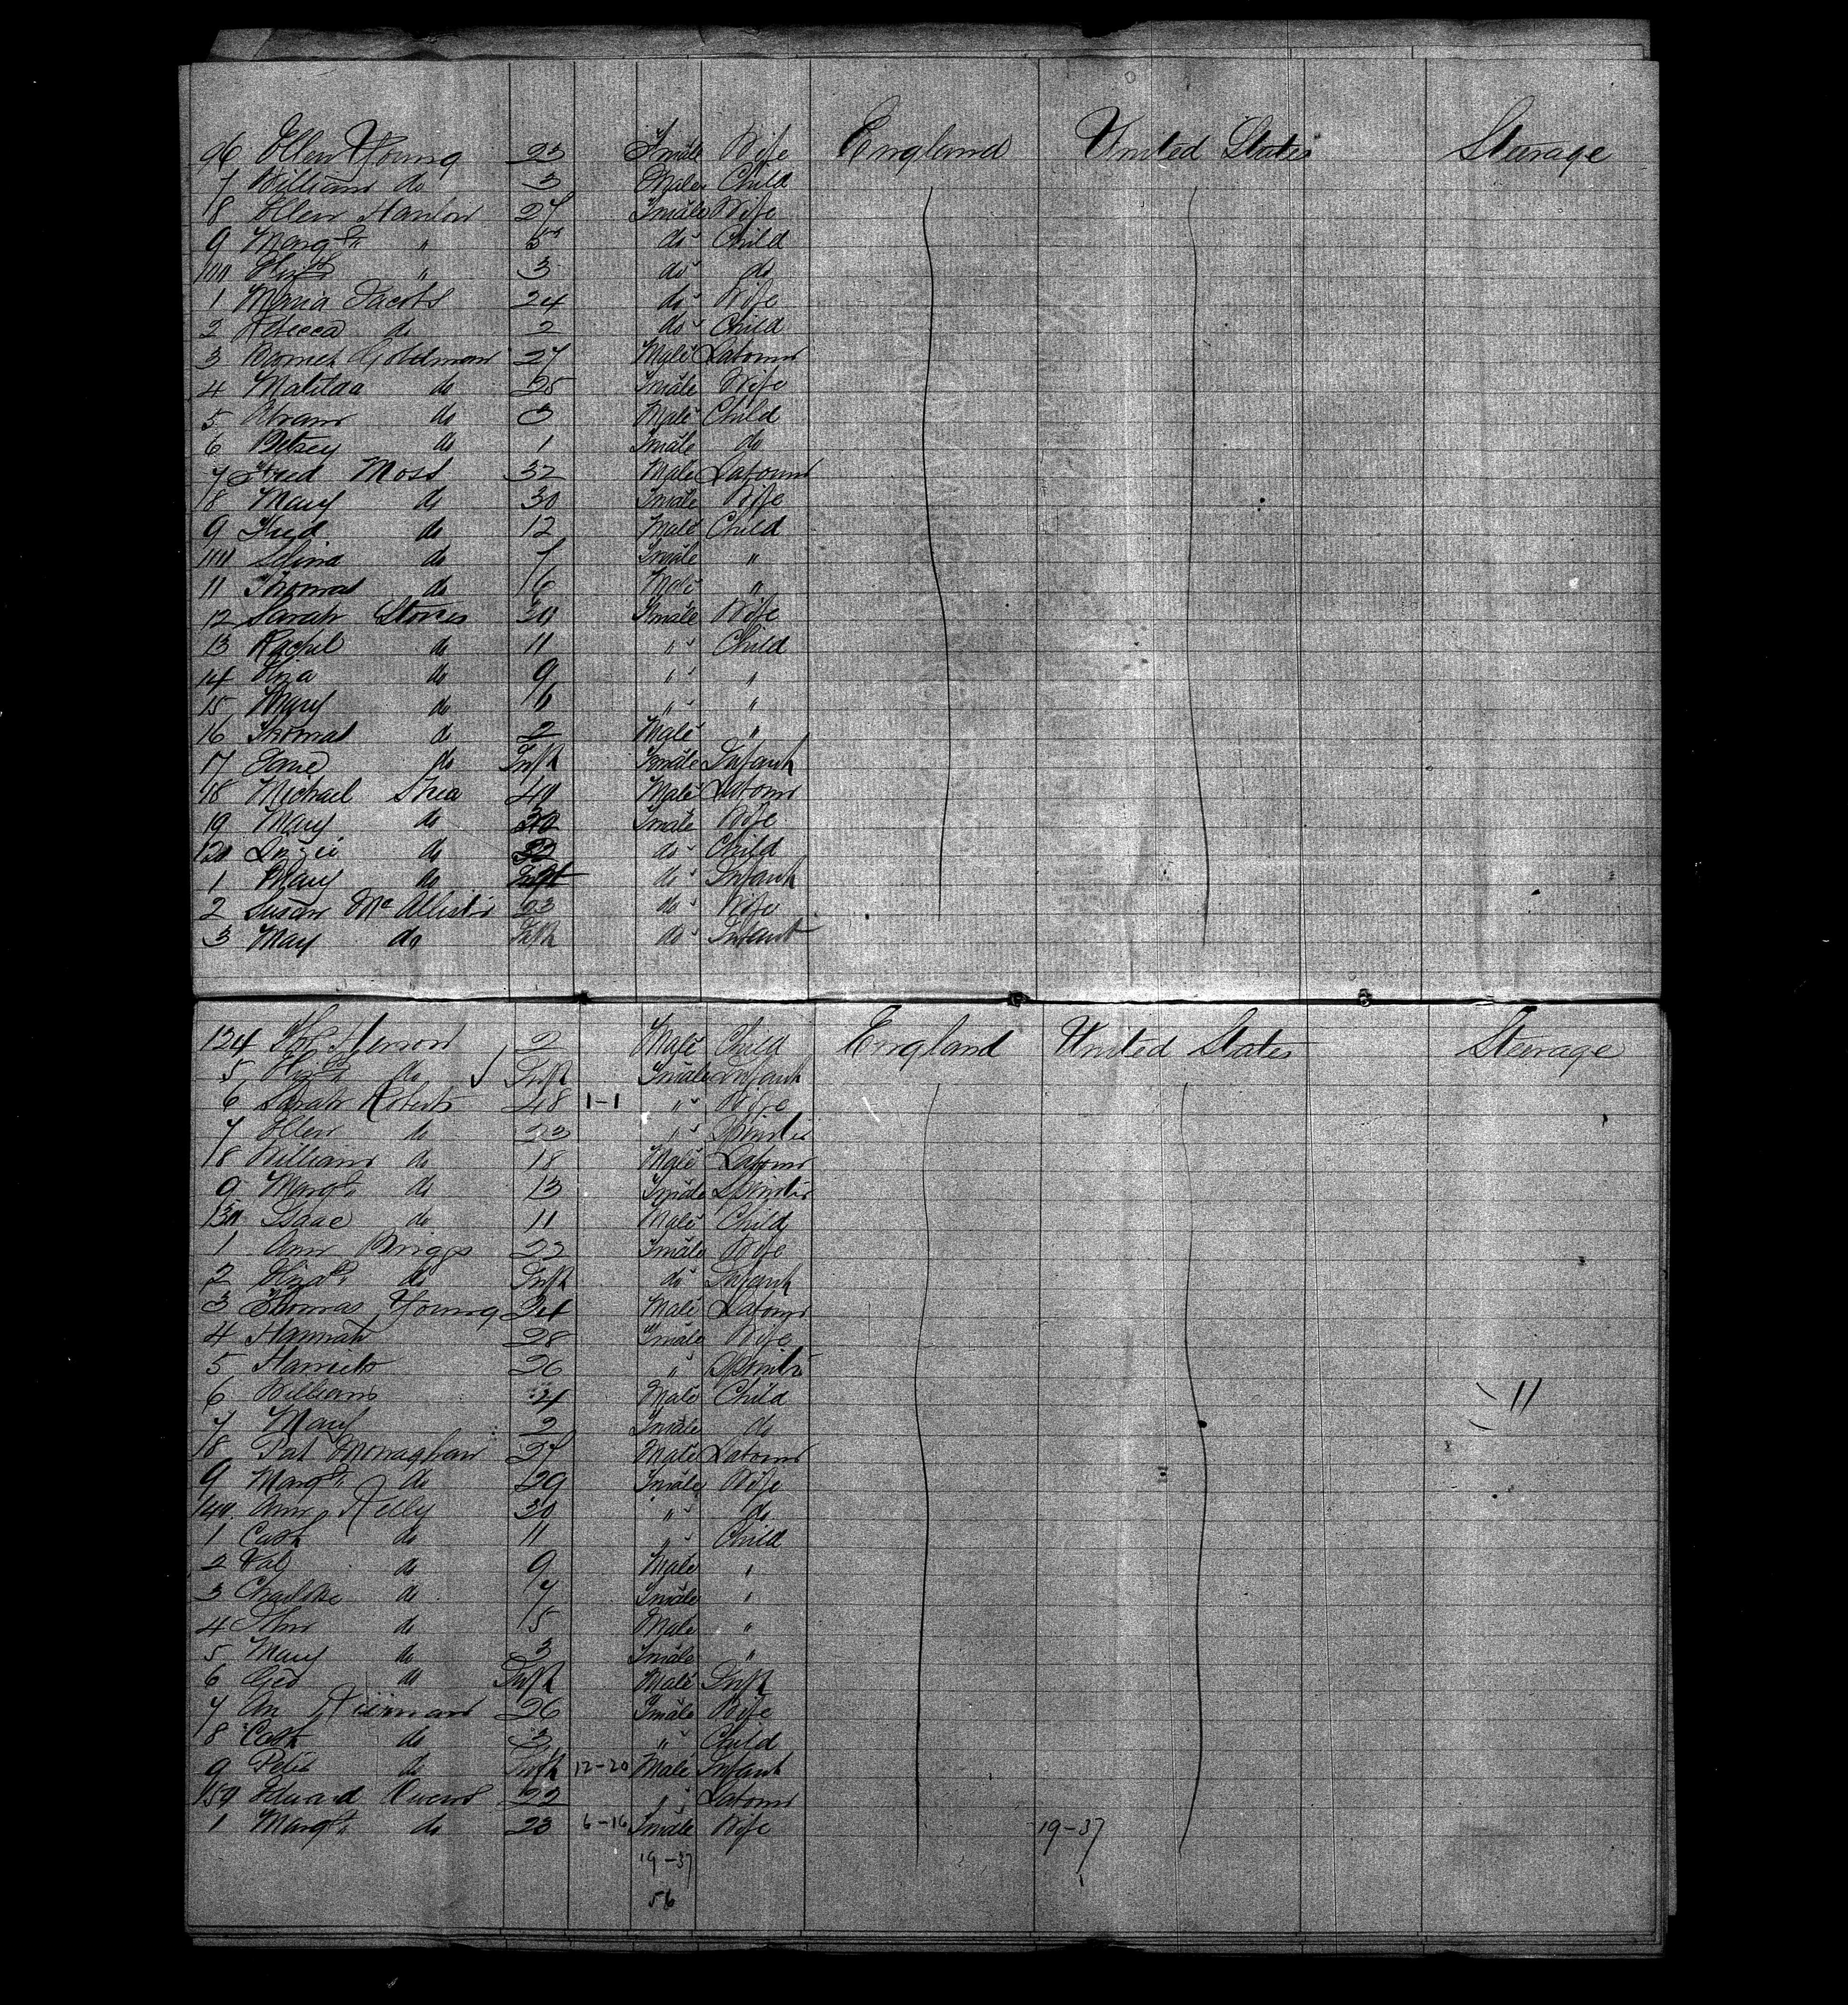 96 Ellen Young 23 Female Wife England United States Steerage
7 William do 3 Male Child
8 Ellen Hanlon 27 Female Wife
9 Margt " 5 do Child
100 " 3 do do
1 Maria Jacobs 24 do Wife
2 Rebecca do 2 do Child
3 Barnet Goldman 27 Male Labourer
4 Matilda do 25 Female Wife
5 Abram do 3 Male Child
6 Betsey do 1 Female do
7 Fred Moss 32 Male Labourer
8 Mary do 30 Female Wife
9 Fred do 12 Male Child
110 Selina do 7 Female "
11 Thomas do 6 Male "
12 Sarah Stones 30 Female Wife
13 Rachel do 11 " Child
14 Eliza do 9 " "
15 Mary do 6 " "
16 Thomas do 2 Male "
17 Jane do Inft Female Infant
18 Michael Shea 40 Male Labourer
19 Mary do Female Wife
120 Lizzie do do Child
1 Mary do Inft do Infant
2 Susan McAllister 23 do Wife
3 Mary do Inft do Infant
124 Henson 2 Male Child England United States Steerage
5 Elizth do Inft Female Infant
6 Sarah Roberts 48 1-1 " Wife
7 Ellen do 23 " Spinster
8 William do 18 Male Labourer
9 Margt do 13 Female Spinster
130 Isaac do 11 Male Child
1 Ann Briggs 22 Female Wife
2 Elizath do Inft do Infant
3 Thomas Young 24 Male Labourer
4 Hannah 28 Female Wife
5 Harriet 26 " Spinster
6 William 4 Male Child 11
7 Mary 2 Female do
8 Pat Monaghan 27 Male Labourer
9 Margt do 29 Female Wife
140 Ann Kelly 30 " do
1 Cath do 11 " Child
2 Val do 9 Male "
3 Charlotte do 7 Female "
4 John do 5 Male "
5 Mary do 3 Female "
6 Geo do Inft Male Inft
7 An Kiernan 26 Female Wife
8 Cath do 3 " Child
9 Peter do Inft 12-20 Male Infant
150 Edward Owens 22 " Labourer
1 Margt do 23 6-16 Female Wife 19-37
19-37
56